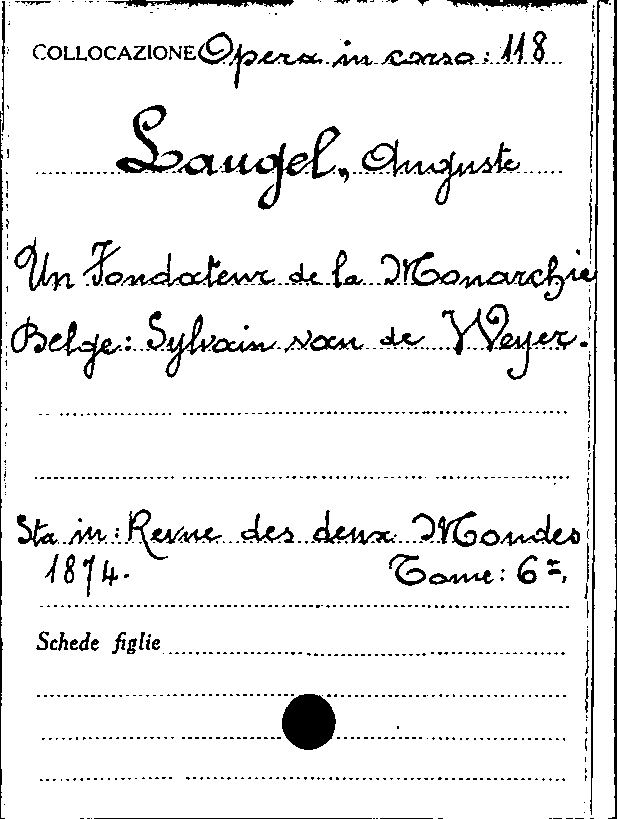 COLLOCAZIONE Opera in corso: 118
Laugel, Auguste
Un Fondateur de la Monarchie
Belge: Sylvain van de Weyer.
Sta in: Revue des deux Mondes
1874. Tome: 6º.
Schede figlie